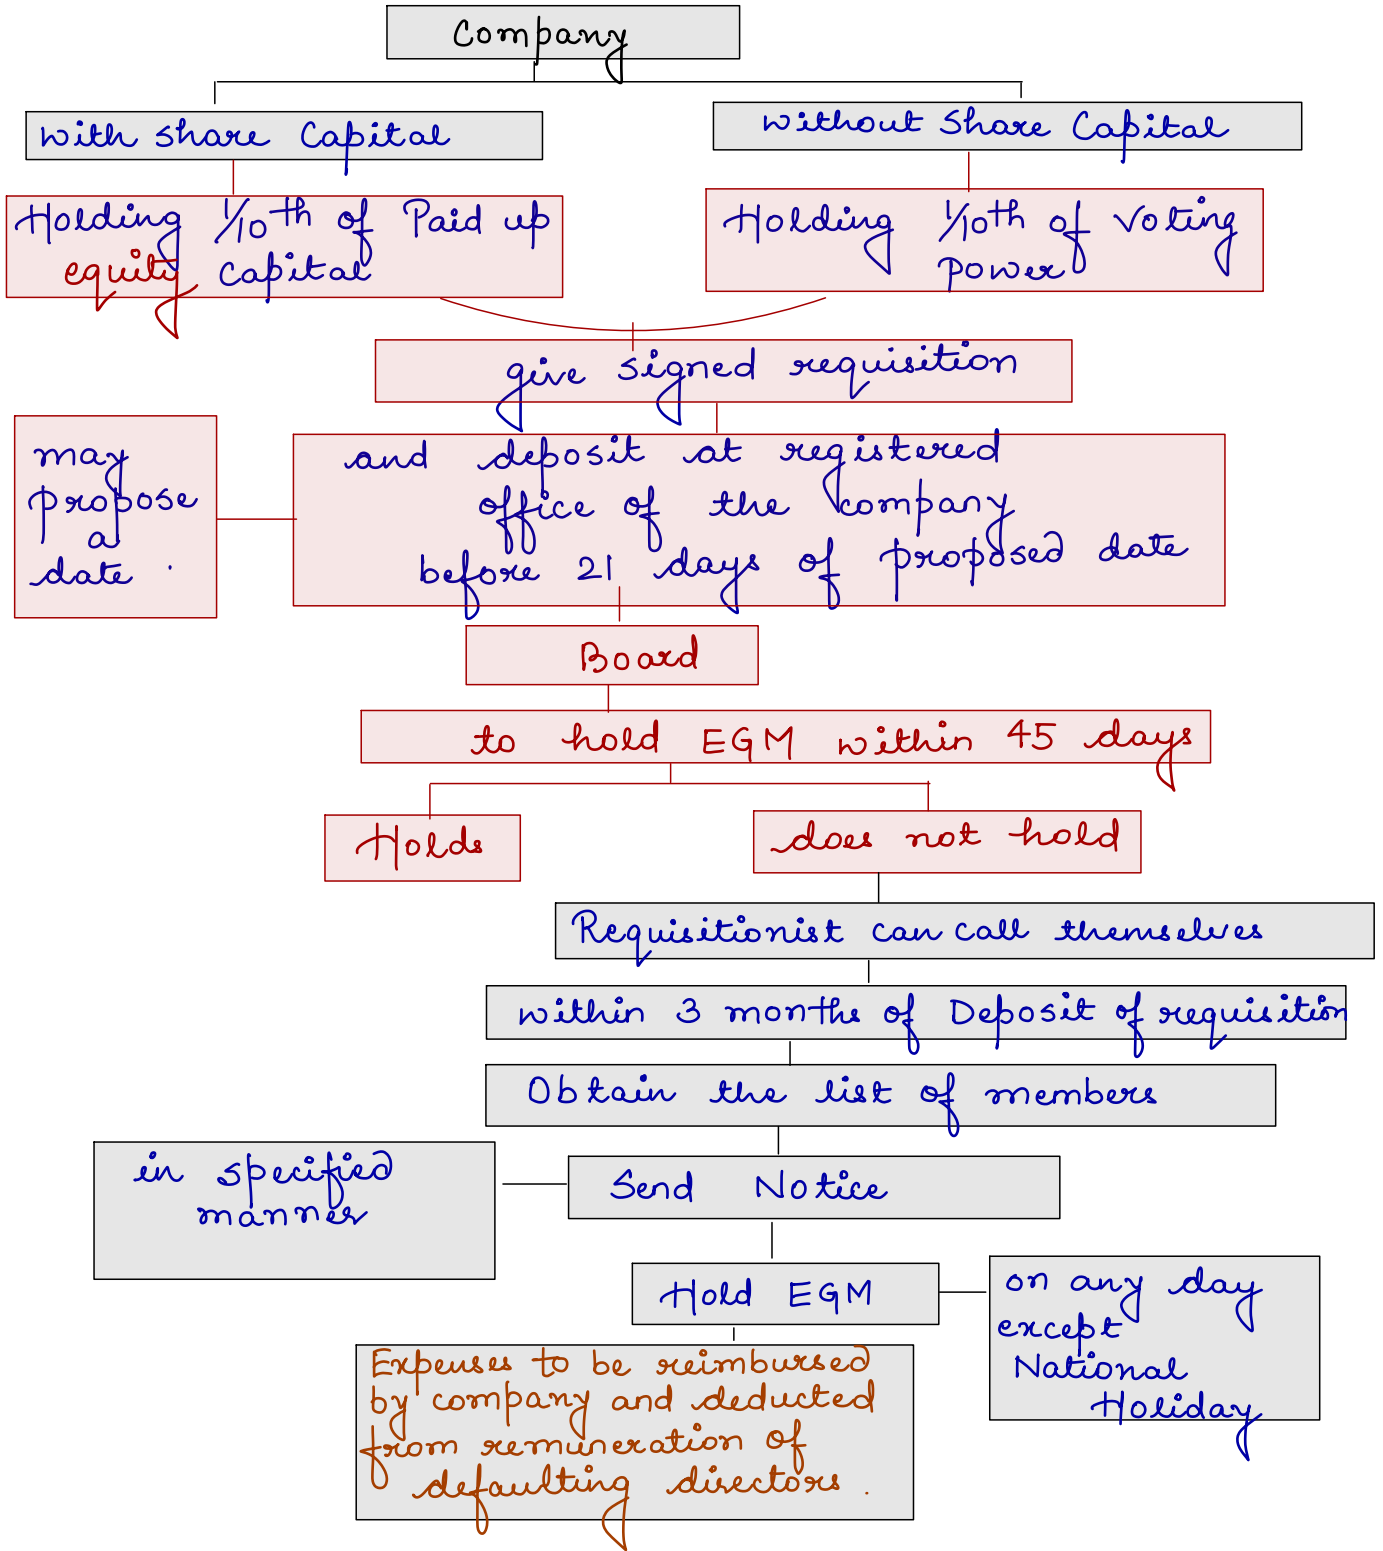 Company
with share Capital
without Share Capital
Holding 1/10th of Paid up
equity capital
Holding 1/10th of Voting
Power
give signed requisition
may
propose
a
date .
and deposit at registered
office of the company
before 21 days of proposed date
Board
to hold EGM within 45 days
Holds
does not hold
Requisitionist can call themselves
within 3 months of Deposit of requisition
Obtain the list of members
in specified
manner
Send Notice
Hold EGM
on any day
except
National
Holiday
Expenses to be reimbursed
by company and deducted
from remuneration of
defaulting directors .